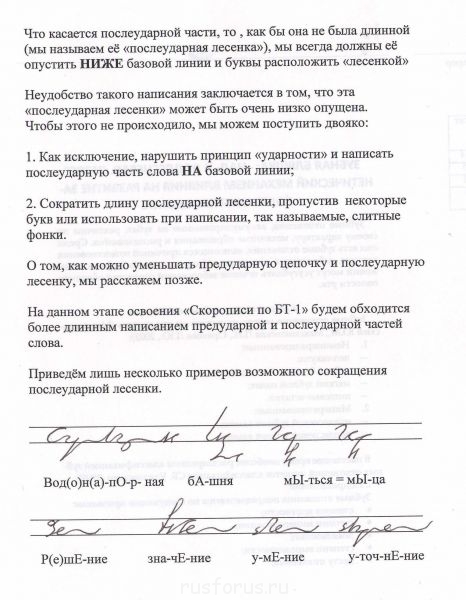 Что касается послеударной части, то , как бы она не была длинной
(мы называем её «послеударная лесенка»), мы всегда должны её
опустить НИЖЕ базовой линии и буквы расположить «лесенкой»
Неудобство такого написания заключается в том, что эта
«послеударная лесенки» может быть очень низко опущена.
Чтобы этого не происходило, мы можем поступить двояко:
1. Как исключение, нарушить принцип «ударности» и написать
послеударную часть слова НА базовой линии;
2. Сократить длину послеударной лесенки, пропустив некоторые
букв или использовать при написании, так называемые, слитные
фонки.
О том, как можно уменьшать предударную цепочку и послеударную
лесенку, мы расскажем позже.
На данном этапе освоения «Скорописи по БТ-1» будем обходится
более длинным написанием предударной и послеударной частей
слова.
Приведём лишь несколько примеров возможного сокращения
послеударной лесенки.
Вод(о)н(а)-пО-р- ная бА-шня мЫ-ться = мЫ-ца
Р(е)шЕ-ние зна-чЕ-ние у-мЕ-ние у-точ-нЕ-ние
rusforus.ru